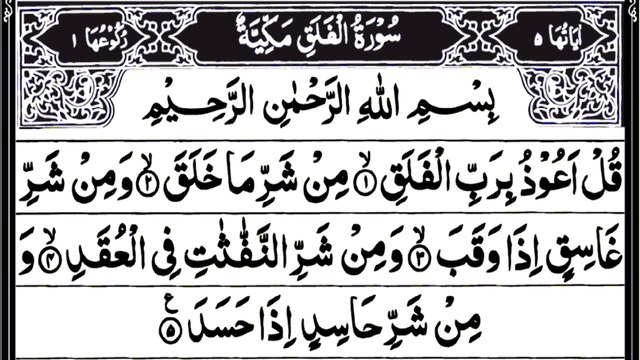 اٰيَاتُهَا ٥ سُوْرَةُ الْفَلَقِ مَكِّيَّةٌ رُكُوْعُهَا ١
بِسْمِ اللهِ الرَّحْمٰنِ الرَّحِيْمِ
قُلْ اَعُوْذُ بِرَبِّ الْفَلَقِۙ‏ ۝١ مِنْ شَرِّ مَا خَلَقَۙ‏ ۝٢ وَمِنْ شَرِّ
غَاسِقٍ اِذَا وَقَبَۙ‏ ۝٣ وَمِنْ شَرِّ النَّفّٰثٰتِ فِى الْعُقَدِۙ‏ ۝٤ وَ
مِنْ شَرِّ حَاسِدٍ اِذَا حَسَدَ ۝٥ ع